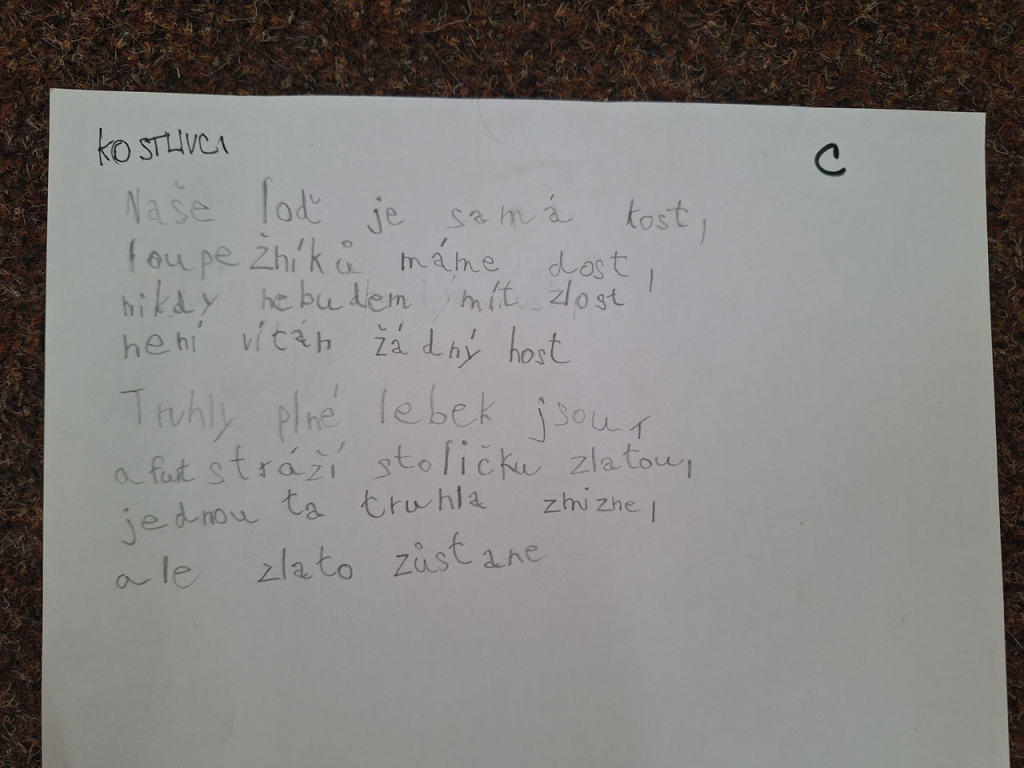 KOSTLIVCI
C
Naše loď je samá kost,
loupežníků máme dost,
nikdy nebudem mít zlost
není vítán žádný host
Truhly plné lebek jsou,
a furt stráží stoličku zlatou,
jednou ta truhla zmizne,
ale zlato zůstane